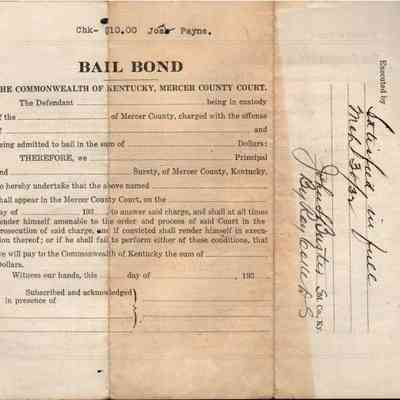 Chk- $10.00 Payne.
BAIL BOND
THE COMMONWEALTH OF KENTUCKY, MERCER COUNTY COURT.
The Defendant being in custody
of the of Mercer County, charged with the offense
of and
being admitted to bail in the sum of Dollars:
THEREFORE, we Principal
and Surety, of Mercer County, Kentucky,
do hereby undertake that the above named
shall appear in the Mercer County Court, on the
day of 193 , to answer said charge, and shall at all times
render himself amenable to the order and process of said Court in the
prosecution of said charge, and if convicted shall render himself in execu-
tion thereof; or if he shall fail to perform either of these conditions, that
we will pay to the Commonwealth of Kentucky the sum of
Dollars.
Witness our hands, this day of , 193
Subscribed and acknowledged
in presence of
Executed by
Satisfied in full